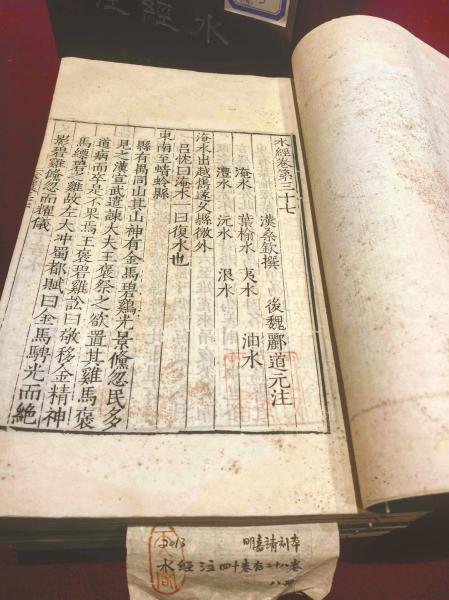 水經注
水經卷第三十七
漢桑欽撰 後魏酈道元注
淹水 葉榆水 夷水 油水
澧水 沅水 浪水
淹水出越雋遂久縣徼外
呂忱曰淹水一曰復水也
東南至蜻蛉縣
縣有禺同山其山神有金馬碧鷄光景儵忽民多
見之漢宣武遣諫大夫王褒祭之欲置其雞馬褒
道病而卒是不果焉王褒碧雞頌曰敬移金精神
馬縹碧之雞故左太冲蜀都賦曰金馬騁光而絶
影碧雞儵忽而耀儀
明嘉靖刻本
水經注四十卷存二十八卷